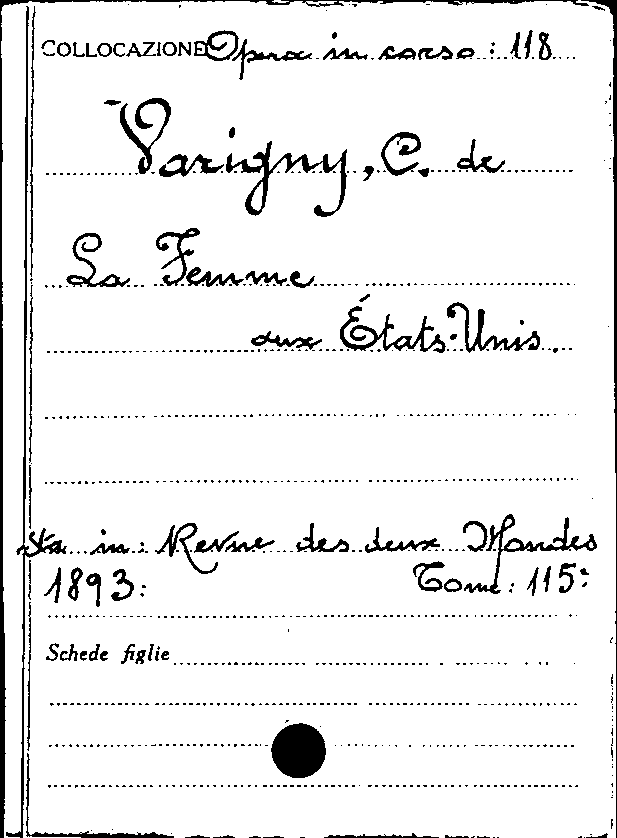 COLLOCAZIONE Opera in corso: 118
Varigny, C. de
La Femme
aux États-Unis.
Sta in: Revue des deux Mondes
1893: Tome: 115º
Schede figlie